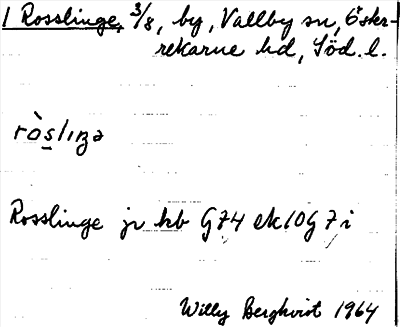 1 Rosslinge, 3/8, by, Vallby sn, Öster-
rekarne hd, Söd. l.
ròs̲lıŋə
Rosslinge jr kb G74 ek 10G 7i
Willy Bergkvist 1964